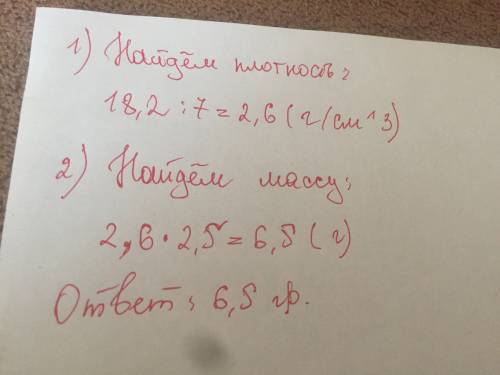 1) Найдём плотность:
18,2 : 7 = 2,6 (г/см^3)
2) Найдём массу:
2,6 · 2,5 = 6,5 (г)
Ответ: 6,5 гр.